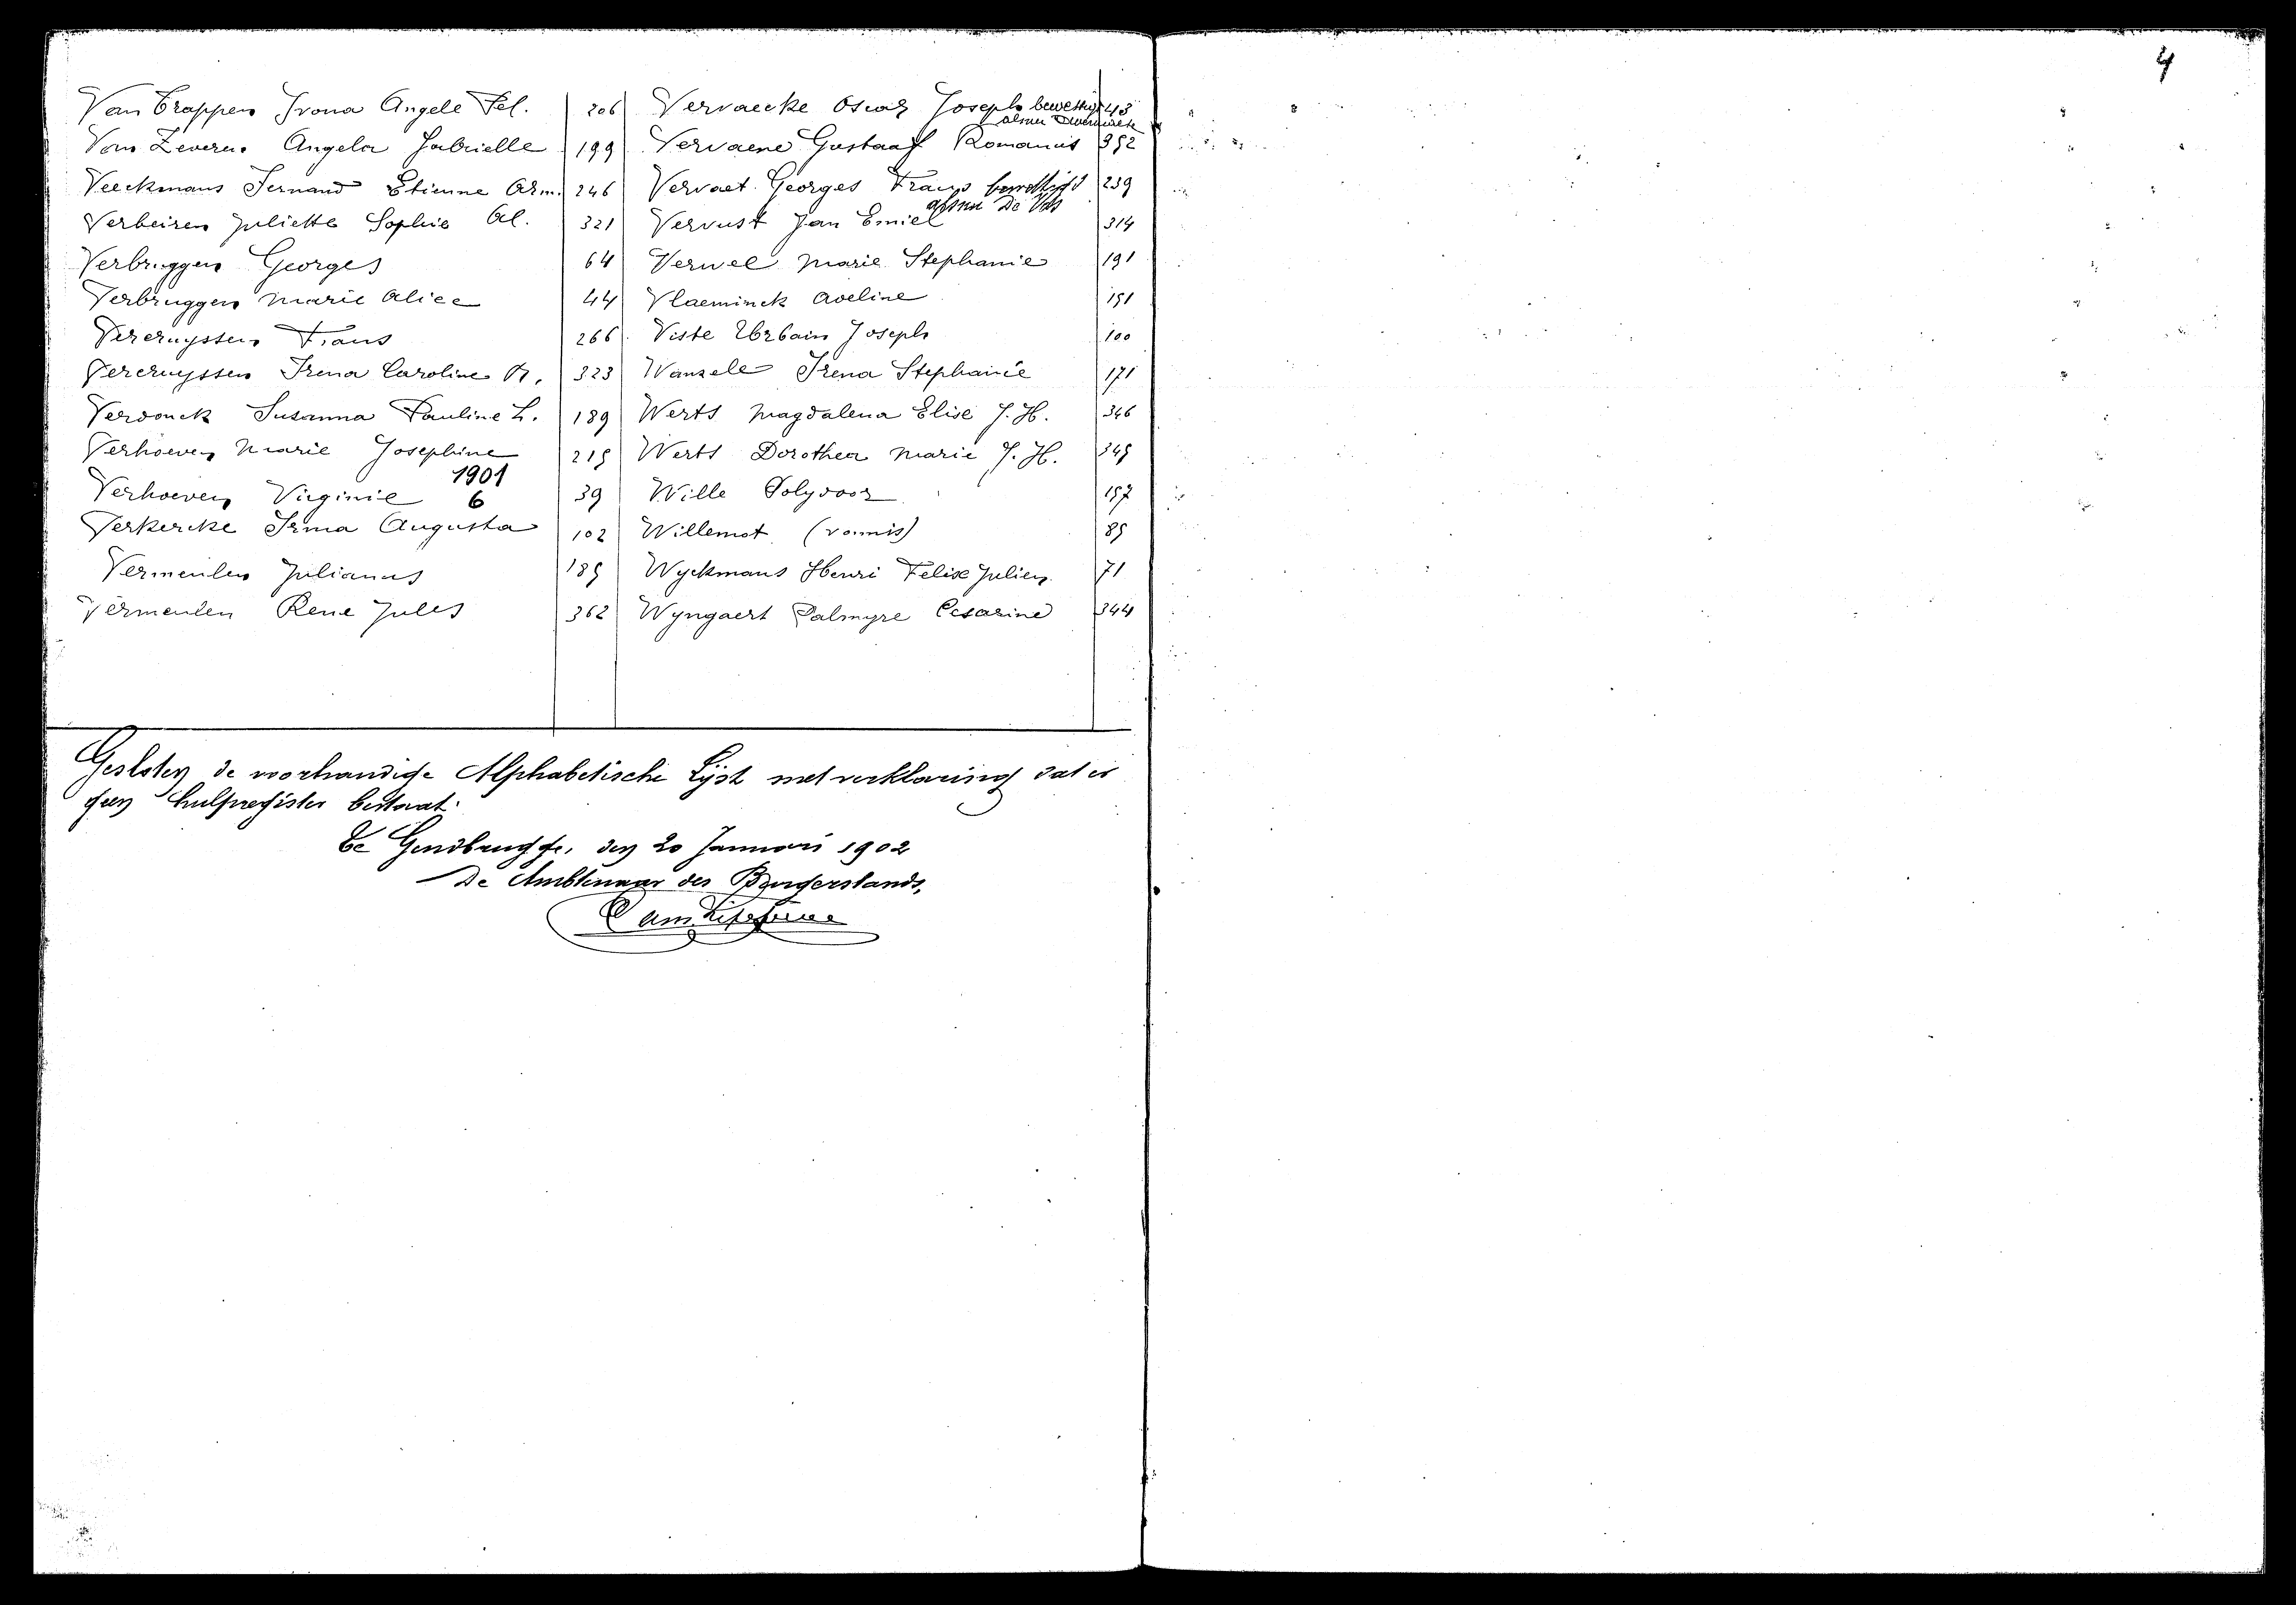 4
Van Trappen Ivona Angele Fel. 206
Van Zeveren Angela Gabrielle 199
Veeckmans Fernand Etienne Arm. 246
Verbeiren Juliette Sophie Al. 321
Verbruggen Georges 64
Verbruggen Marie Alice 44
Vercruyssen Frans 266
Vercruyssen Irena Caroline A. 323
Verdonck Susanna Pauline L. 189
Verhoeven Marie Josephine 215
1901
Verhoeven Virginie 6 39
Verkercke Irma Augusta 102
Vermeulen Julianus 185
Vermeulen Rene Jules 362
Vervaecke Oscar Joseph 43
alsnu
Vervaene Gustaaf Romanus 352
Vervaet Georges Frans bewettigd 239
alsnu De Vos
Vervust Jan Emiel 314
Verwee Marie Stephanie 191
Vlaeminck Aveline 151
Viste Urbain Joseph 100
Wanzele Irena Stephanie 171
Werts Magdalena Elise J. H. 346
Werts Dorothea Marie J. H. 345
Wille Polydoor 157
Willemot (vonnis) 85
Wyckmans Henri Felix Julien 71
Wyngaert Palmyre Cesarine 344
Gesloten de voorhandige Alphabetische Lijst met verklaring dat er
geen hulpregister bestaat.
Te Gendbrugge, den 20 Januari 1902
De Ambtenaar des Burgerstands,